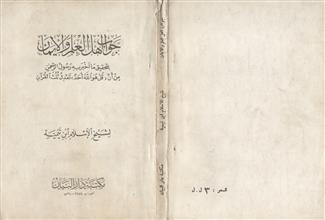 جواب أهل العلم والإيمان
بتحقيق ما أخبر به رسول الرحمن
من أن « قل هو الله أحد » تعدل ثلث القرآن
لشيخ الإسلام ابن تيمية
مكتبة دار البيان
شيخ الاسلام ابن تيمية
مكتبة دار البيان
السعر : ٣ ل.ل